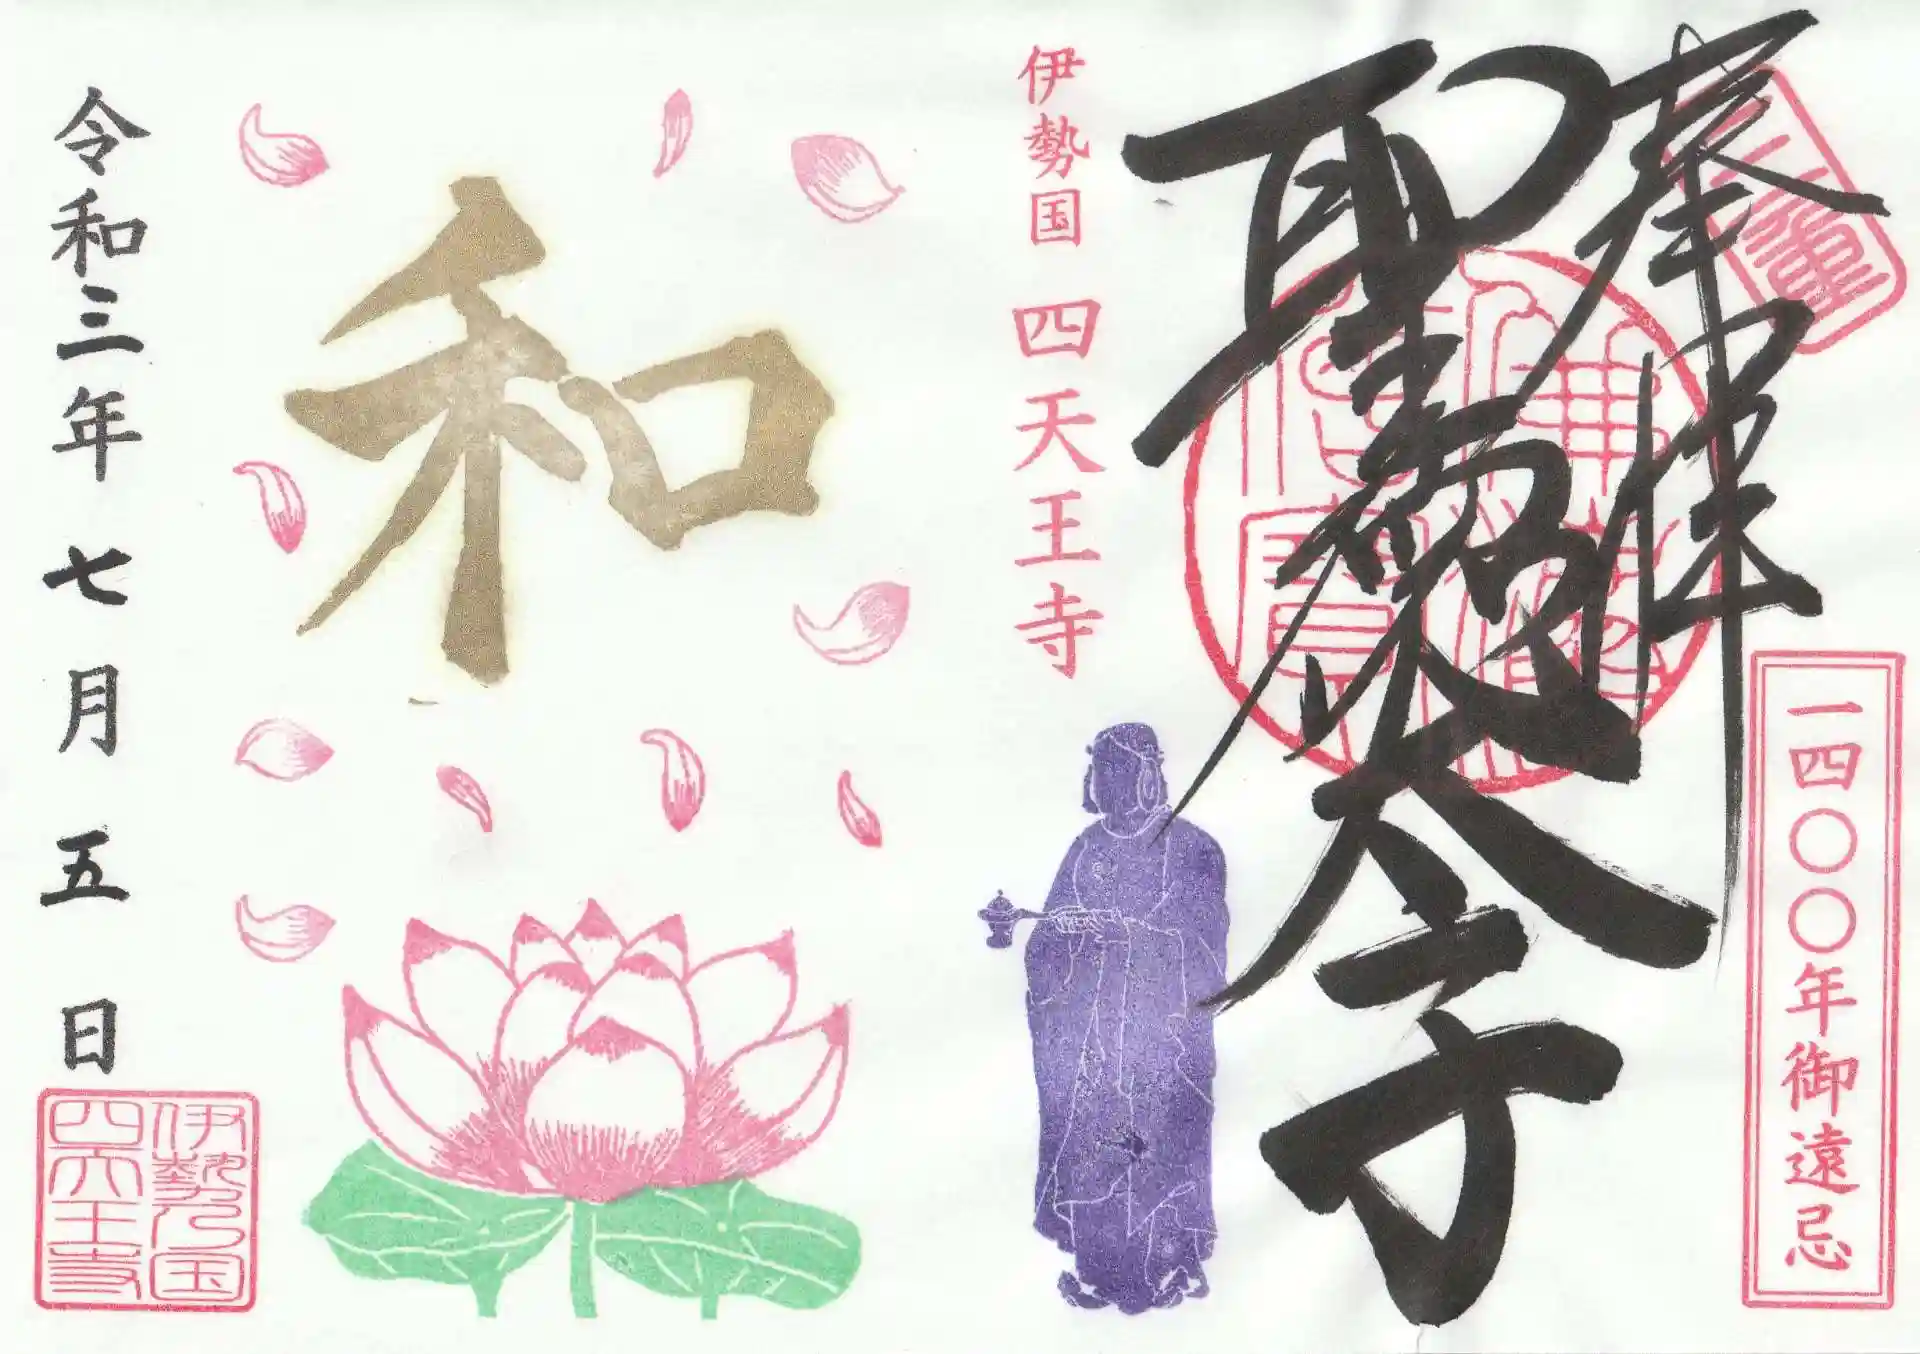 奉拝
一四〇〇年御遠忌
聖徳太子
伊勢国 四天王寺
和
令和三年 七月 五日
伊勢乃国
四天王寺